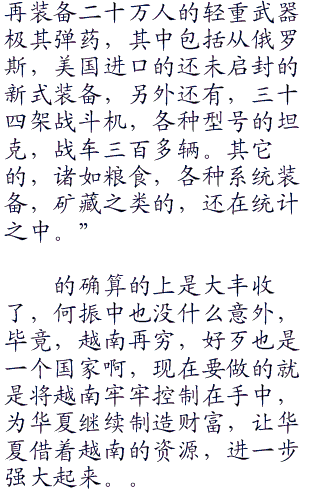 再装备二十万人的轻重武器
极其弹药，其中包括从俄罗
斯，美国进口的还未启封的
新式装备，另外还有，三十
四架战斗机，各种型号的坦
克，战车三百多辆。其它
的，诸如粮食，各种系统装
备，矿藏之类的，还在统计
之中。”
的确算的上是大丰收
了，何振中也没什么意外，
毕竟，越南再穷，好歹也是
一个国家啊，现在要做的就
是将越南牢牢控制在手中，
为华夏继续制造财富，让华
夏借着越南的资源，进一步
强大起来。。